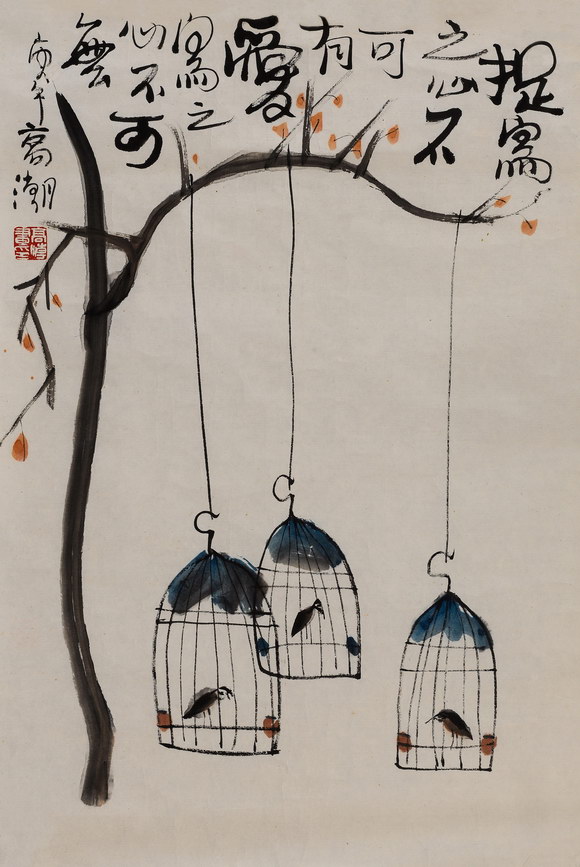 捉鳥
之心不
可
有
愛
鳥之
心不可
無
午高潮